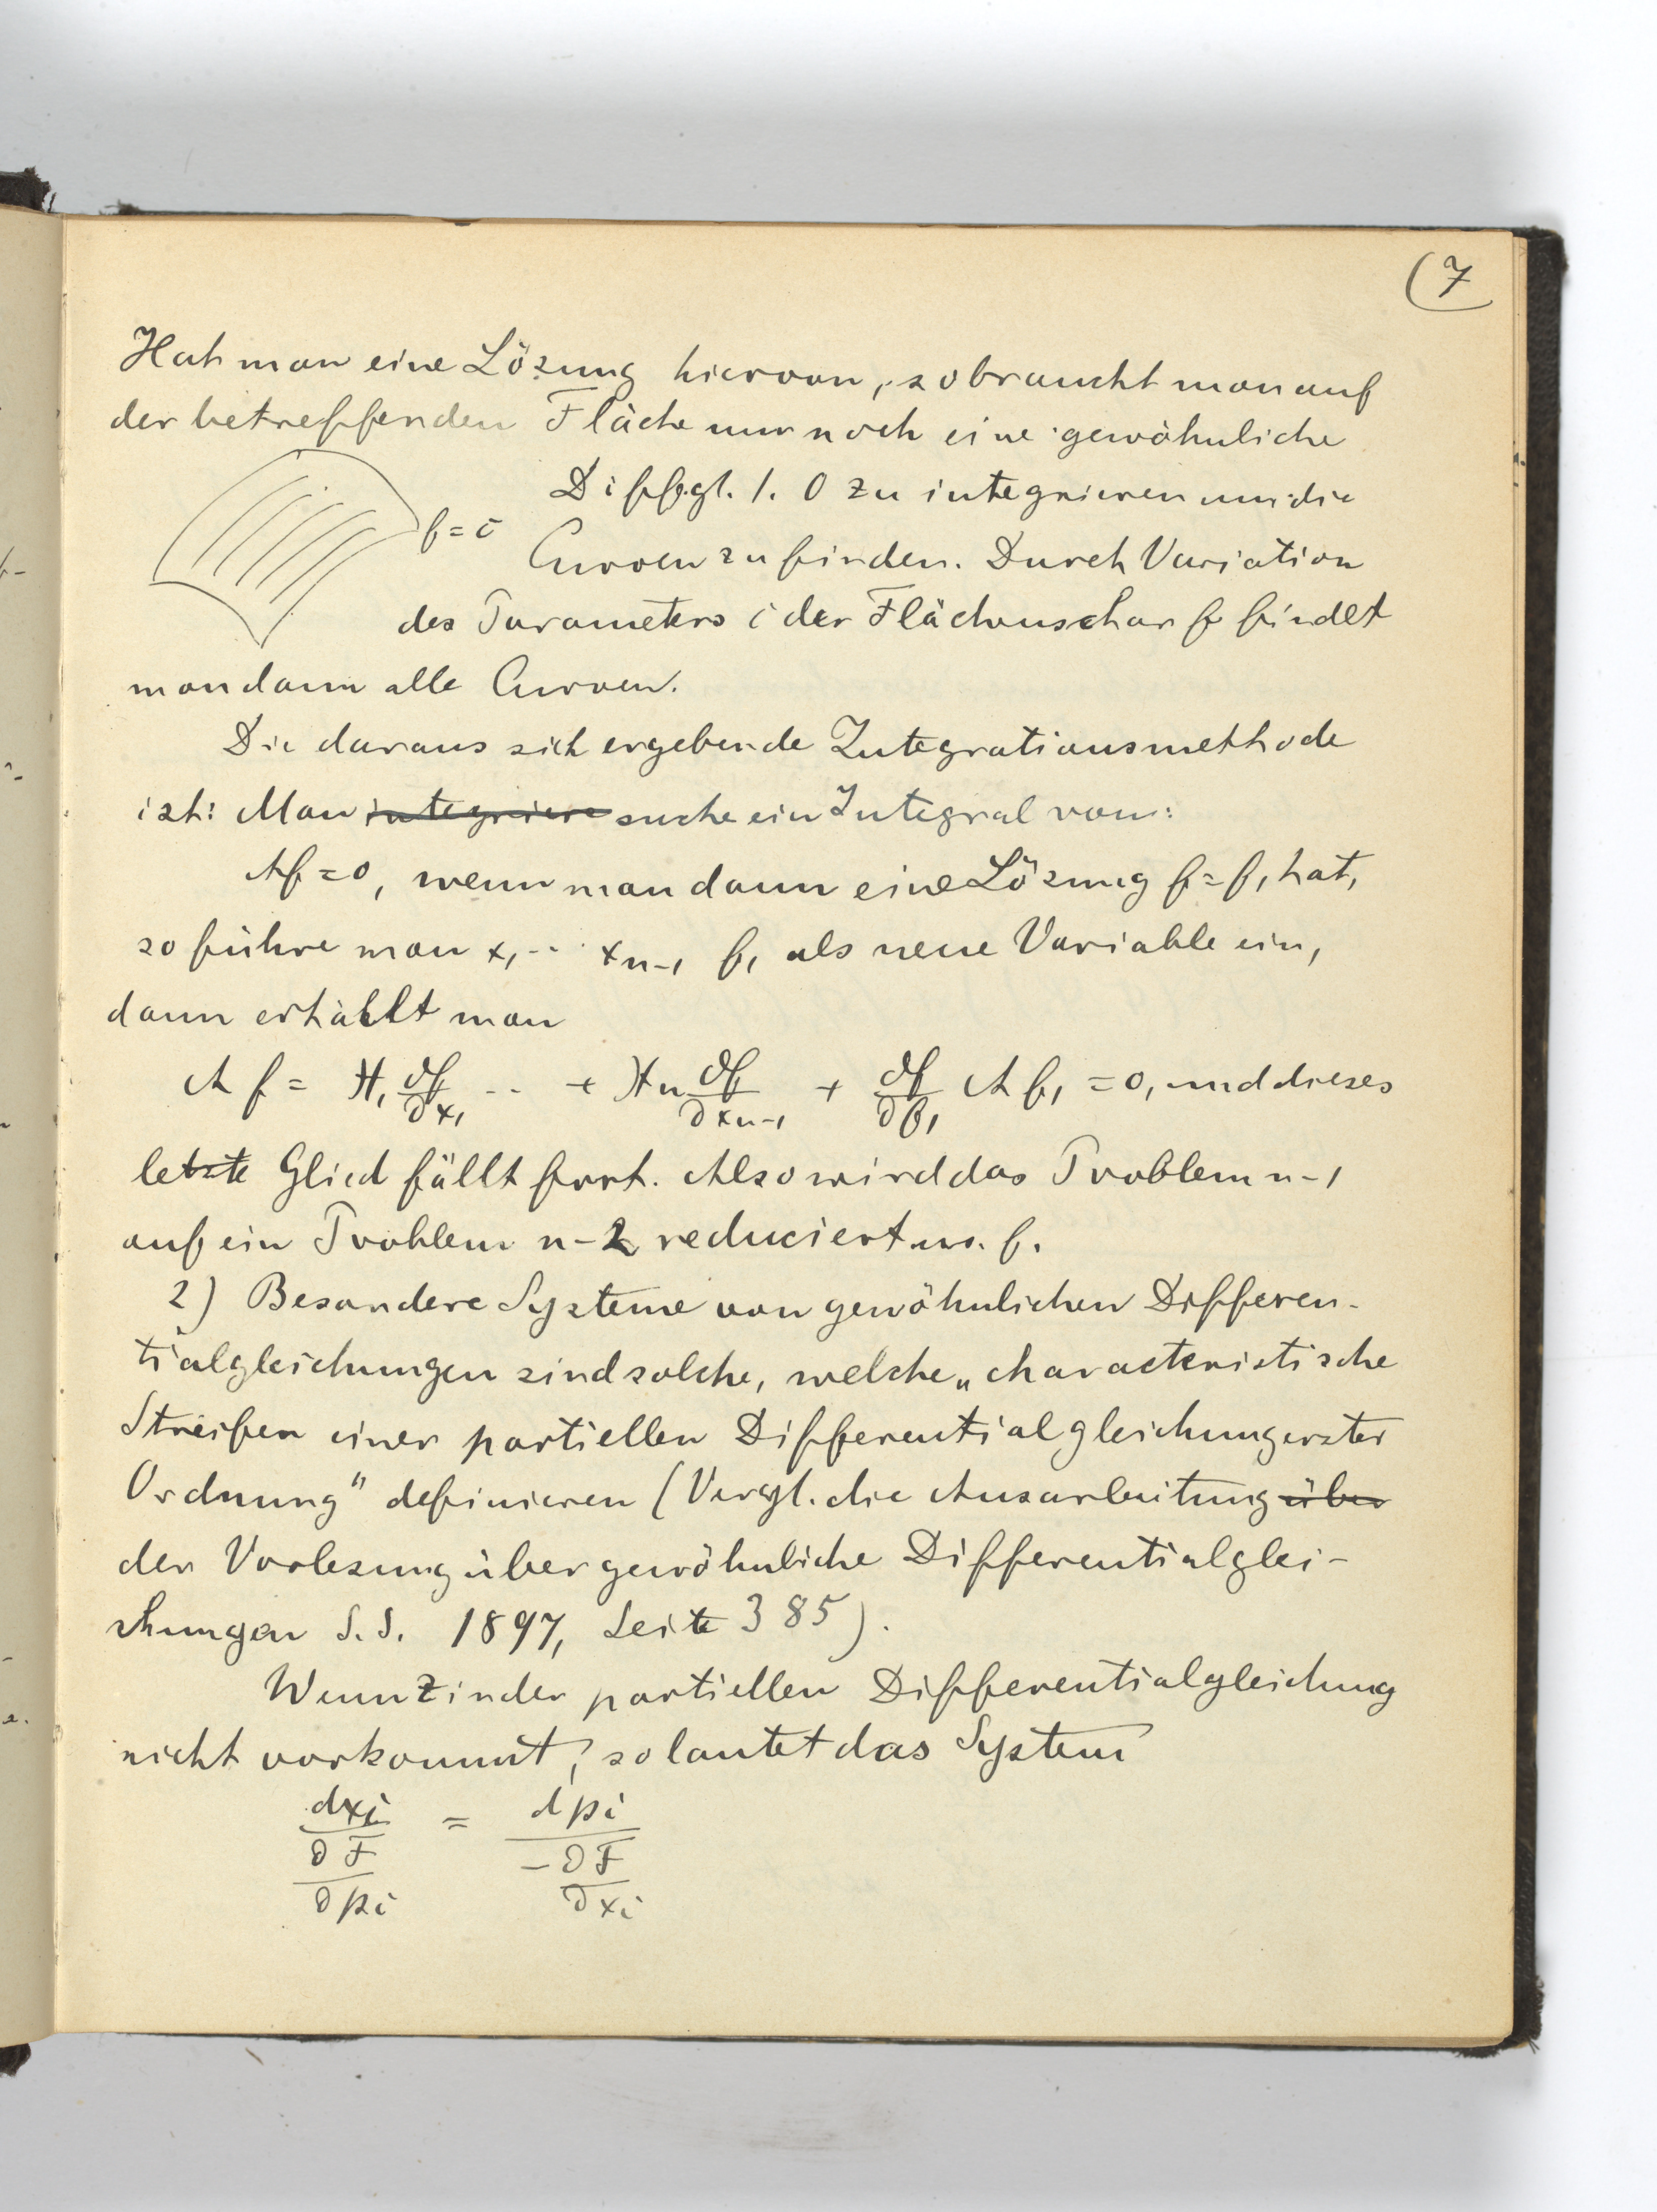 (7
Hat man eine Lösung hiervon, so braucht man auf
der betreffenden Fläche nur noch eine gewöhnliche
Diffgl. 1. O zu integrieren um die
f = c
Curven zu finden. Durch Variation
des Parameters c der Flächenschar f findet
man dann alle Curven.
Die daraus sich ergebende Integrationsmethode
ist: Man integriere suche ein Integral von:
Af = 0, wenn man dann eine Lösung f = f₁ hat,
so führe man x₁ ·· xₙ₋₁ f₁ als neue Variable ein,
dann erhält man
A f = H₁ ∂f/∂x₁ ·· + Hₙ ∂f/∂xₙ₋₁ + ∂f/∂f₁ A f₁ = 0, und dieses
letzte Glied fällt fort. Also wird das Problem n-1
auf ein Problem n-2 reduciert u. s. f.
2) Besondere Systeme von gewöhnlichen Differen-
tialgleichungen sind solche, welche „characteristische
Streifen einer partiellen Differentialgleichung erster
Ordnung" definieren (Vergl. die Ausarbeitung über
der Vorlesung über gewöhnliche Differentialglei-
chungen S. S. 1897, Seite 385).
Wenn z in der partiellen Differentialgleichung
nicht vorkommt, so lautet das System
dxi / (∂F/∂pi) = dpi / (-∂F/∂xi)